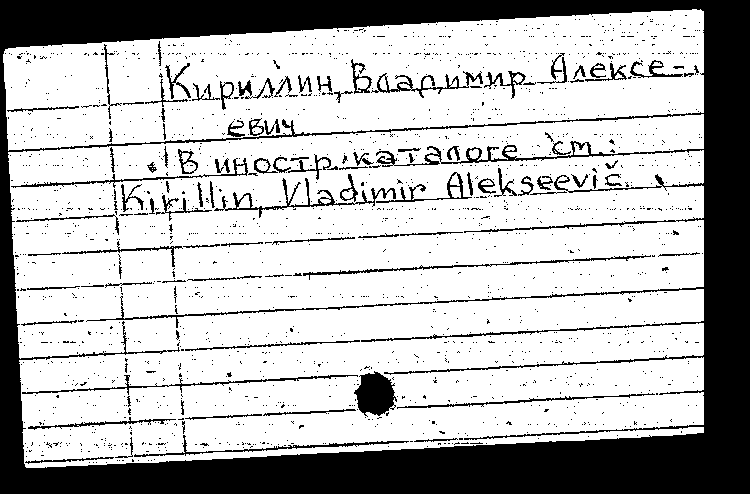 Кириллин, Владимир Алексе-
евич
В иностр. каталоге см.:
Kirillin, Vladimir Alekseevič.